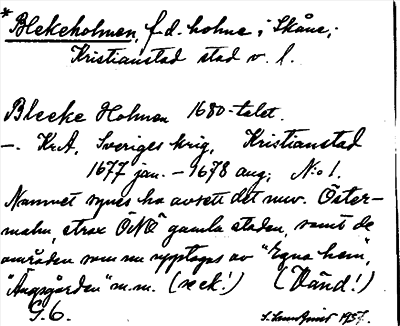 *Blekeholmen, f.d. holme i Skåne;
Kristianstad stad v. l.
Bleeke Holmen 1680-talet.
–. KrA, Sveriges krig, Kristianstad
1677 jan. – 1678 aug; N:o 1.
Namnet synes ha avsett det nuv. Öster-
malm, strax ÖNÖ gamla staden, samt de
områden som nu upptagas av "Egna hem",
"Ängsgården" m.m. (se ek!) (Vänd!)
G. 6. 1957.